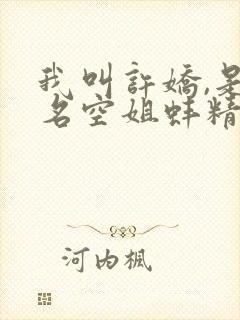 我叫許嬌,是
名空姐蚌精
河内楓